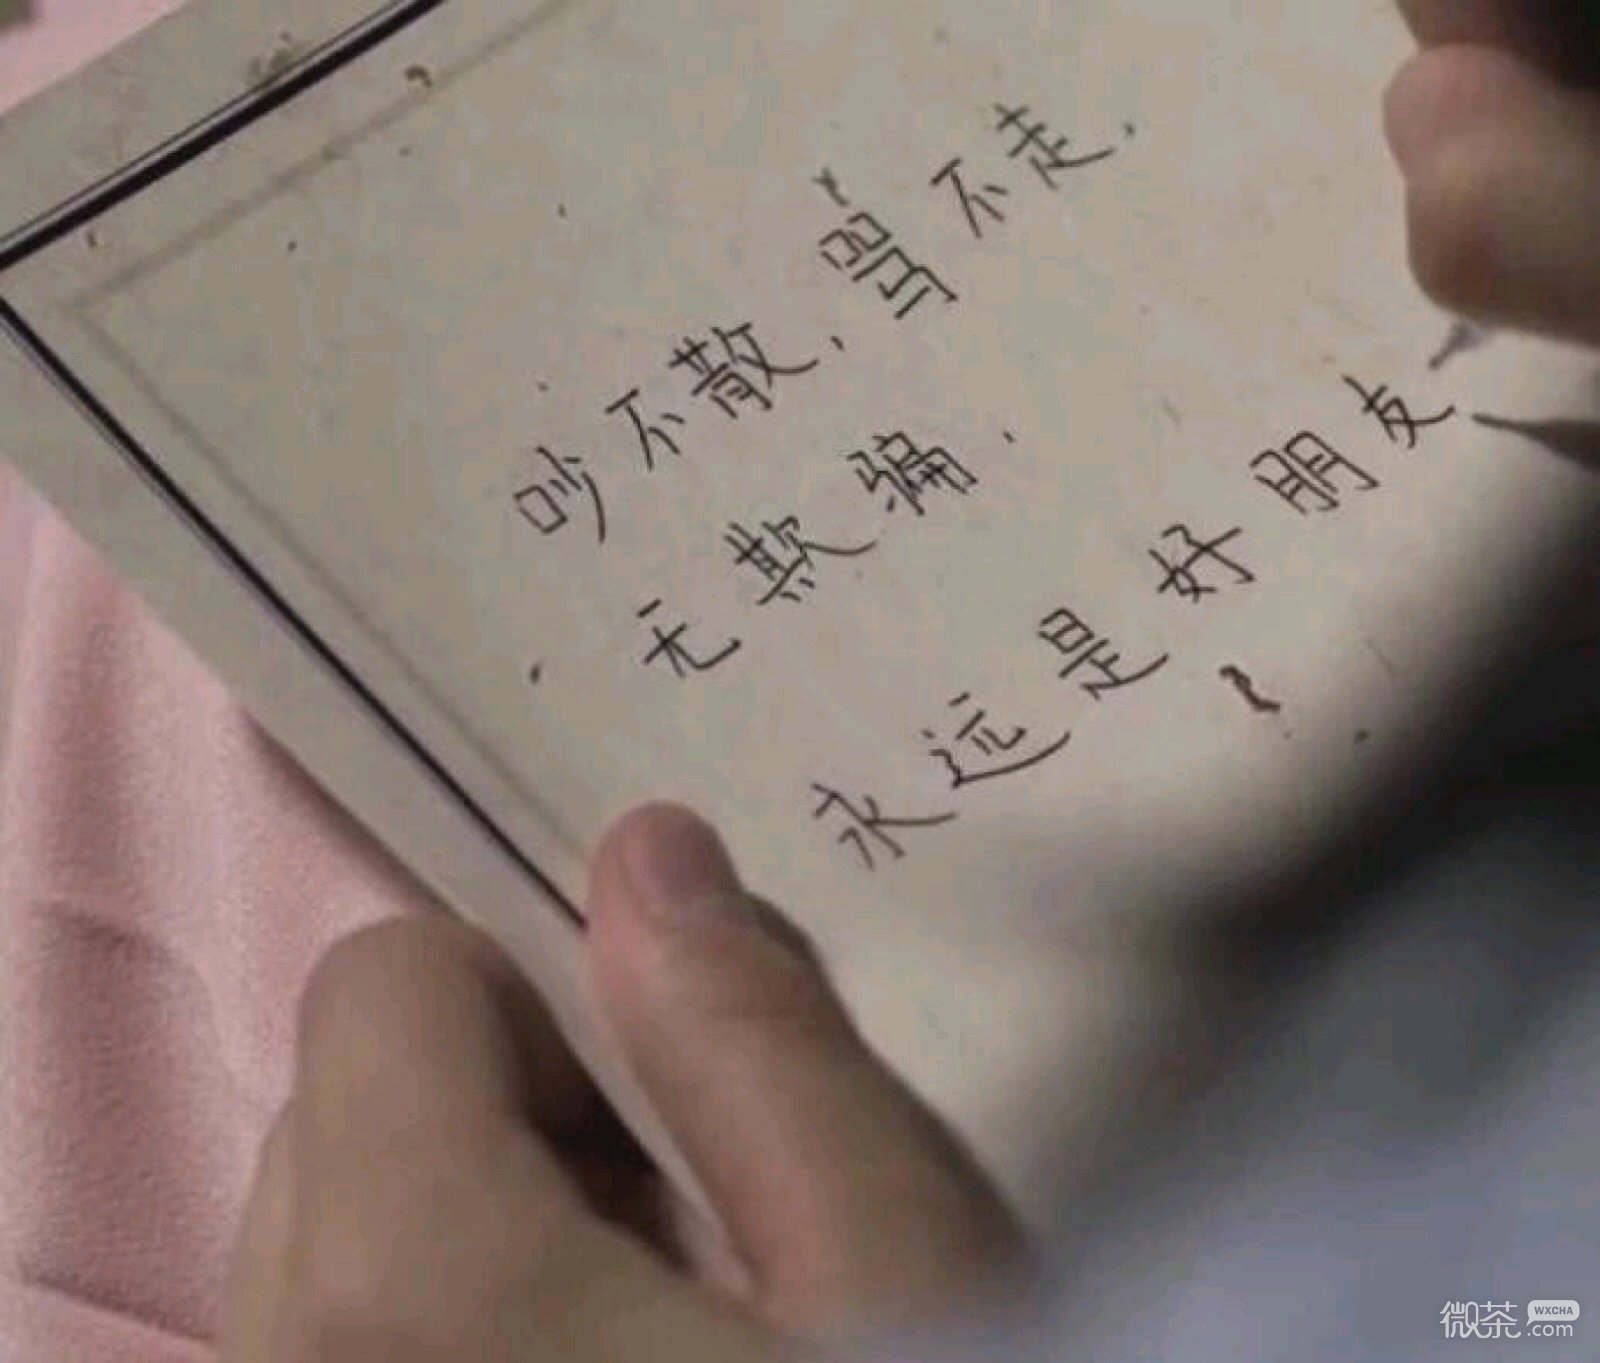 吵不散，骂不走，
无欺骗．
永远是好朋友
微茶 WXCHA .com